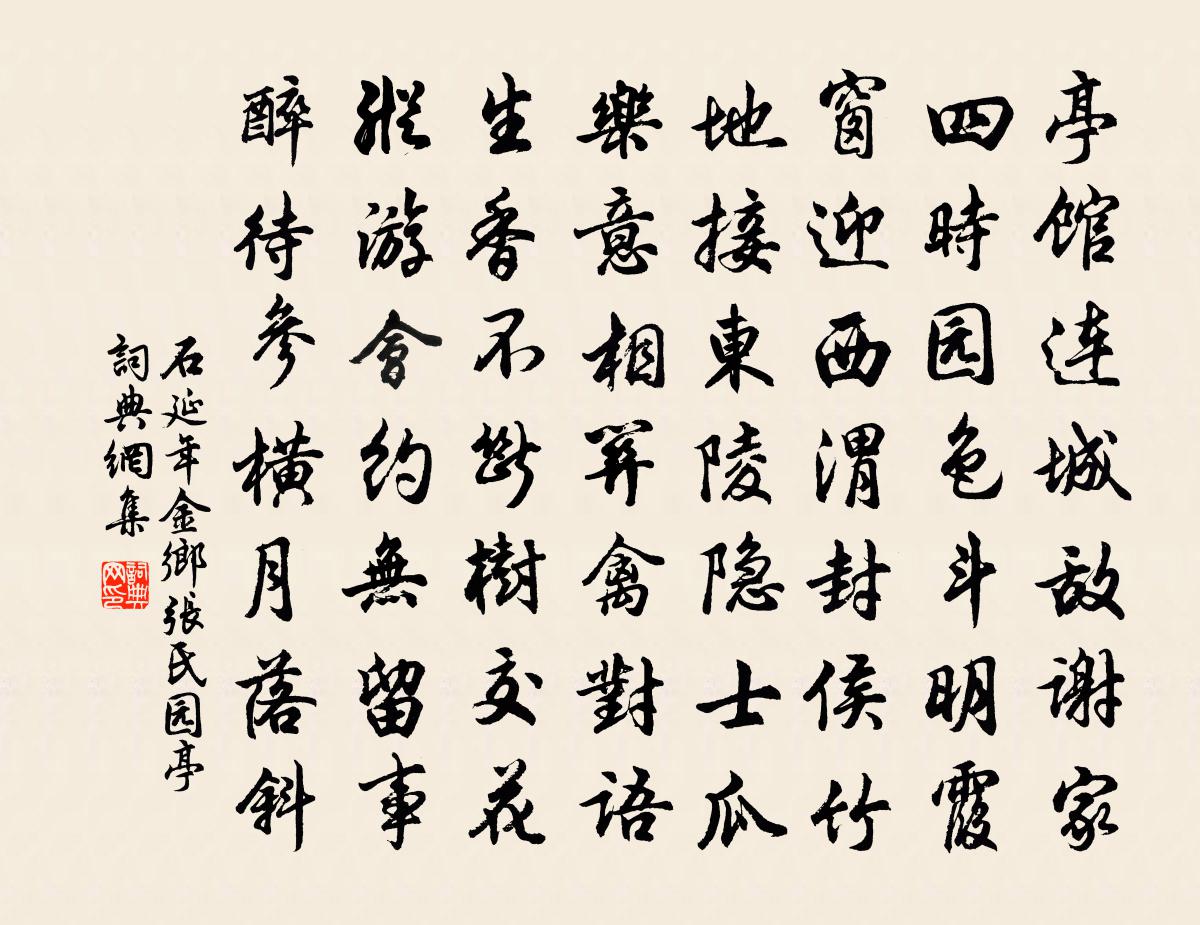 亭馆连城敌谢家
四時园色斗明霞
窗迎西渭封侯竹
地接東陵隐士瓜
樂意相關禽對语
生香不斷樹交花
縱游會約無留事
醉待參橫月落斜
石延年金鄉張氏园亭
詞典網集
詞典网印